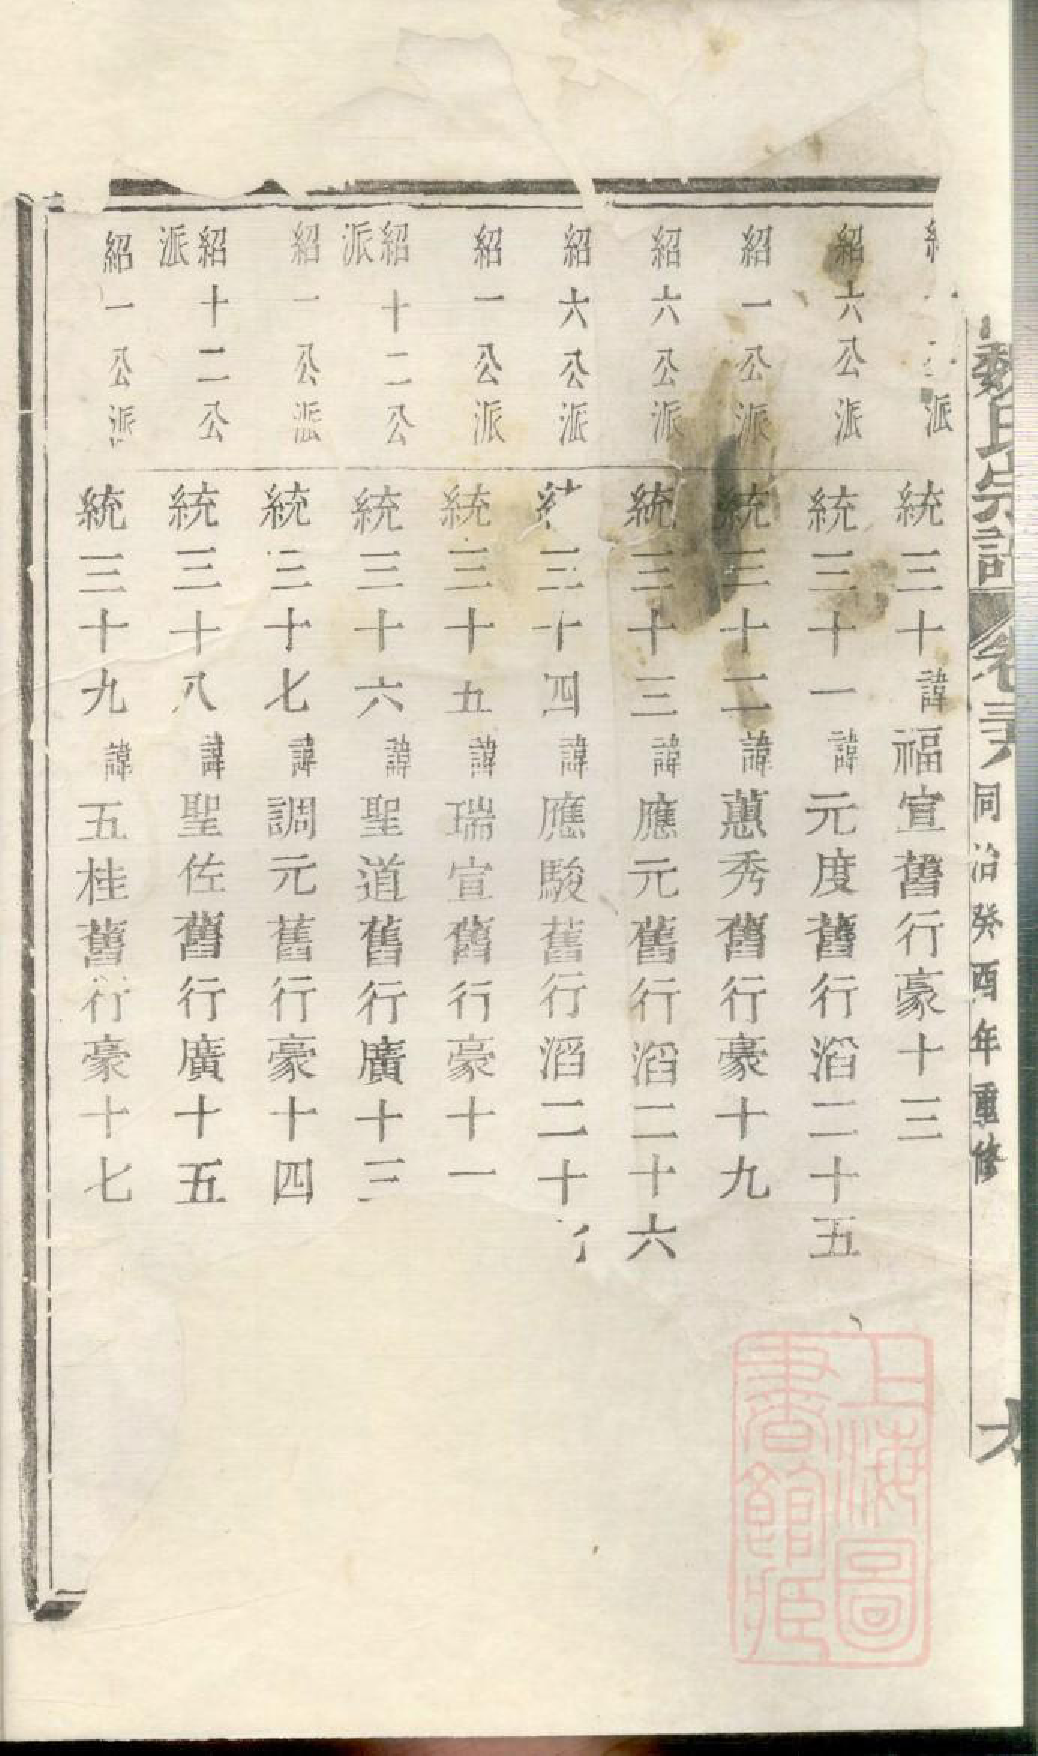 魏氏宗譜 卷之六 同治癸酉年重修
派
統三十諱福宣舊行豪十三
紹六公派
統三十一諱元度舊行滔二十五
紹一公派
統三十二諱蕙秀舊行豪十九
紹六公派
統三十三諱應元舊行滔二十六
紹六公派
三十四諱應駿舊行滔二十
紹一公派
統三十五諱瑞宣舊行豪十一
紹十二公派
統三十六諱聖道舊行廣十三
紹一公派
統三十七諱調元舊行豪十四
紹十二公派
統三十八諱聖佐舊行廣十五
紹一公派
統三十九諱五桂舊行豪十七
上海圖
書館藏